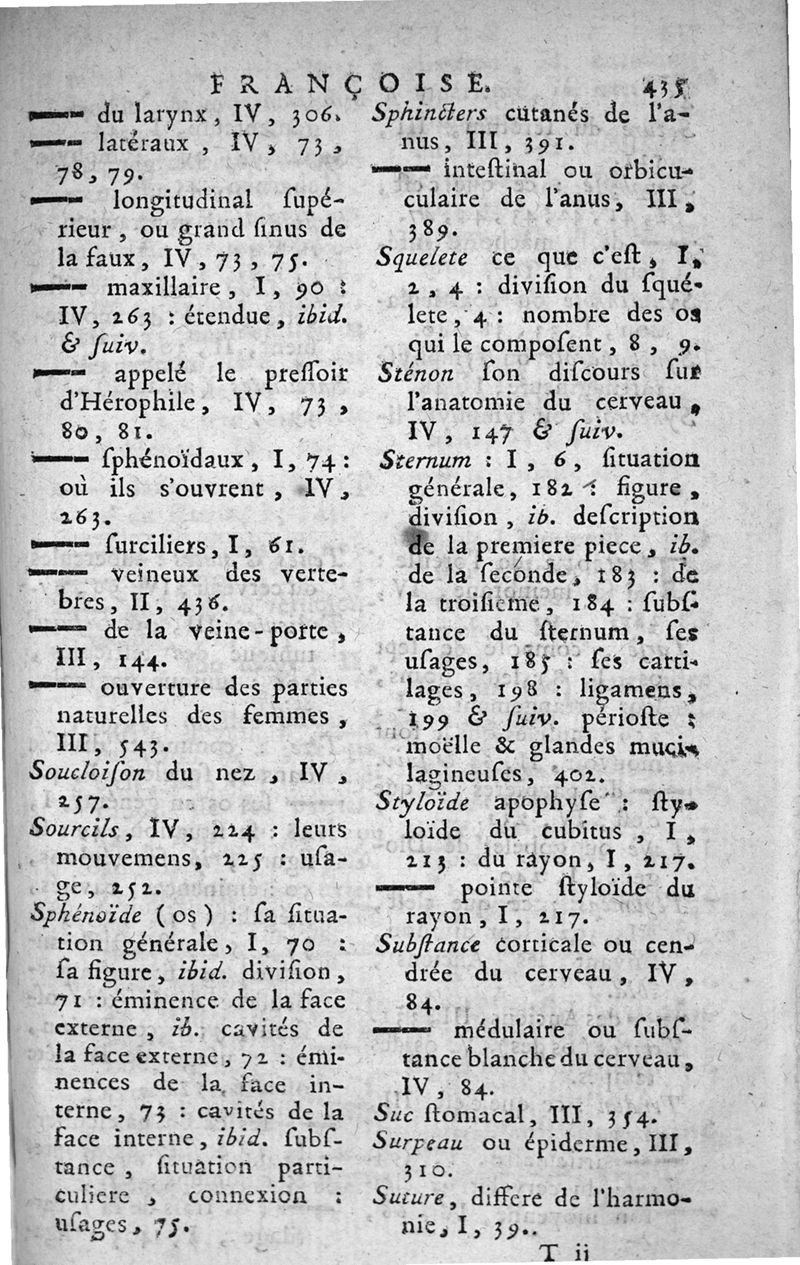 FRANÇOISE. 435
—— du larynx, IV, 306.
—— latéraux, IV, 73,
78, 79.
—— longitudinal ſupé-
rieur, ou grand ſinus de
la faux, IV, 73, 75.
—— maxillaire, I, 90 :
IV, 263 : étendue, ibid.
& ſuiv.
—— appelé le preſſoir
d'Hérophile, IV, 73,
80, 81.
—— ſphénoïdaux, I, 74 :
où ils s'ouvrent, IV,
263.
—— ſurciliers, I, 61.
—— veineux des verte-
bres, II, 436.
—— de la veine-porte,
III, 144.
—— ouverture des parties
naturelles des femmes,
III, 543.
Soucloiſon du nez, IV,
257.
Sourcils, IV, 224 : leurs
mouvemens, 225 : uſa-
ge, 252.
Sphénoïde (os) : ſa ſitua-
tion générale, I, 70 :
ſa figure, ibid. diviſion,
71 : éminence de la face
externe, ib. cavités de
la face externe, 72 : émi-
nences de la face in-
terne, 73 : cavités de la
face interne, ibid. ſubſ-
tance, ſituation parti-
culiere, connexion :
uſages, 75.
Sphincters cutanés de l'a-
nus, III, 391.
—— inteſtinal ou orbicu-
culaire de l'anus, III,
389.
Squelete ce que c'eſt, I,
2, 4 : diviſion du ſqué-
lete, 4 : nombre des os
qui le compoſent, 8, 9.
Sténon ſon diſcours ſur
l'anatomie du cerveau,
IV, 147 & ſuiv.
Sternum : I, 6, ſituation
générale, 182 : figure,
diviſion, ib. deſcription
de la premiere piece, ib.
de la ſeconde, 183 : de
la troiſieme, 184 : ſubſ-
tance du ſternum, ſes
uſages, 185 : ſes carti-
lages, 198 : ligamens,
199 & ſuiv. périoſte :
moëlle & glandes muci-
lagineuſes, 402.
Styloïde apophyſe : ſty-
loïde du cubitus, I,
213 : du rayon, I, 217.
—— pointe ſtyloïde du
rayon, I, 217.
Subſtance corticale ou cen-
drée du cerveau, IV,
84.
—— médulaire ou ſubſ-
tance blanche du cerveau,
IV, 84.
Suc ſtomacal, III, 354.
Surpeau ou épiderme, III,
310.
Suture, differe de l'harmo-
nie, I, 39..
T ii